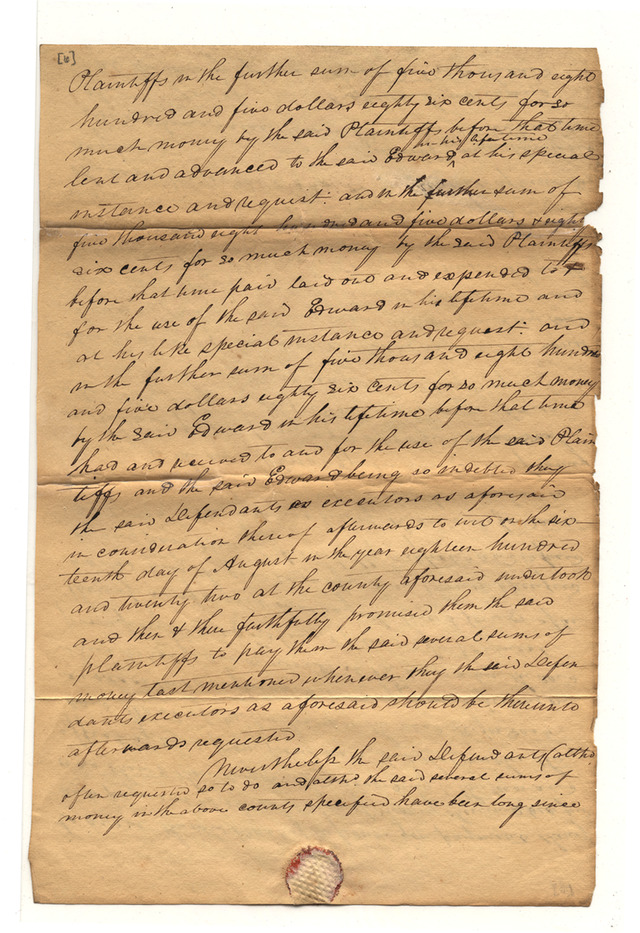 [6]
Plaintiffs in the further sum of five thousand eight
hundred and five dollars eighty six cents for so
much money by the said Plaintiffs before that time
in his lifetime
lent and advanced to the said Edward ^ at his special
instance and request: and in the further sum of
five thousand eight hundred and five dollars & eighty
six cents for so much money by the said Plaintiffs
before that time paid laid out and expended to &
for the use of the said Edward in his lifetime and
at his like special instance and request: and
in the further sum of five thousand eight hundred
and five dollars eighty six cents for so much money
by the said Edward in his lifetime before that time
had and received to and for the use of the said Plain
tiffs and the said Edward being so indebted they
the said Defendants as executors as aforesaid
in consideration thereof afterwards to wit on the six
teenth day of August in the year eighteen hundred
and twenty two at the county aforesaid undertook
and then & there faithfully promised them the said
plaintiffs to pay them the said several sums of
money last mentioned whenever they the said Defen
dants executors as aforesaid should be thereunto
afterwards requested
Nevertheless the said Defendants (altho
often requested so to do and altho the said several sums of
money in the above counts specified have been long since